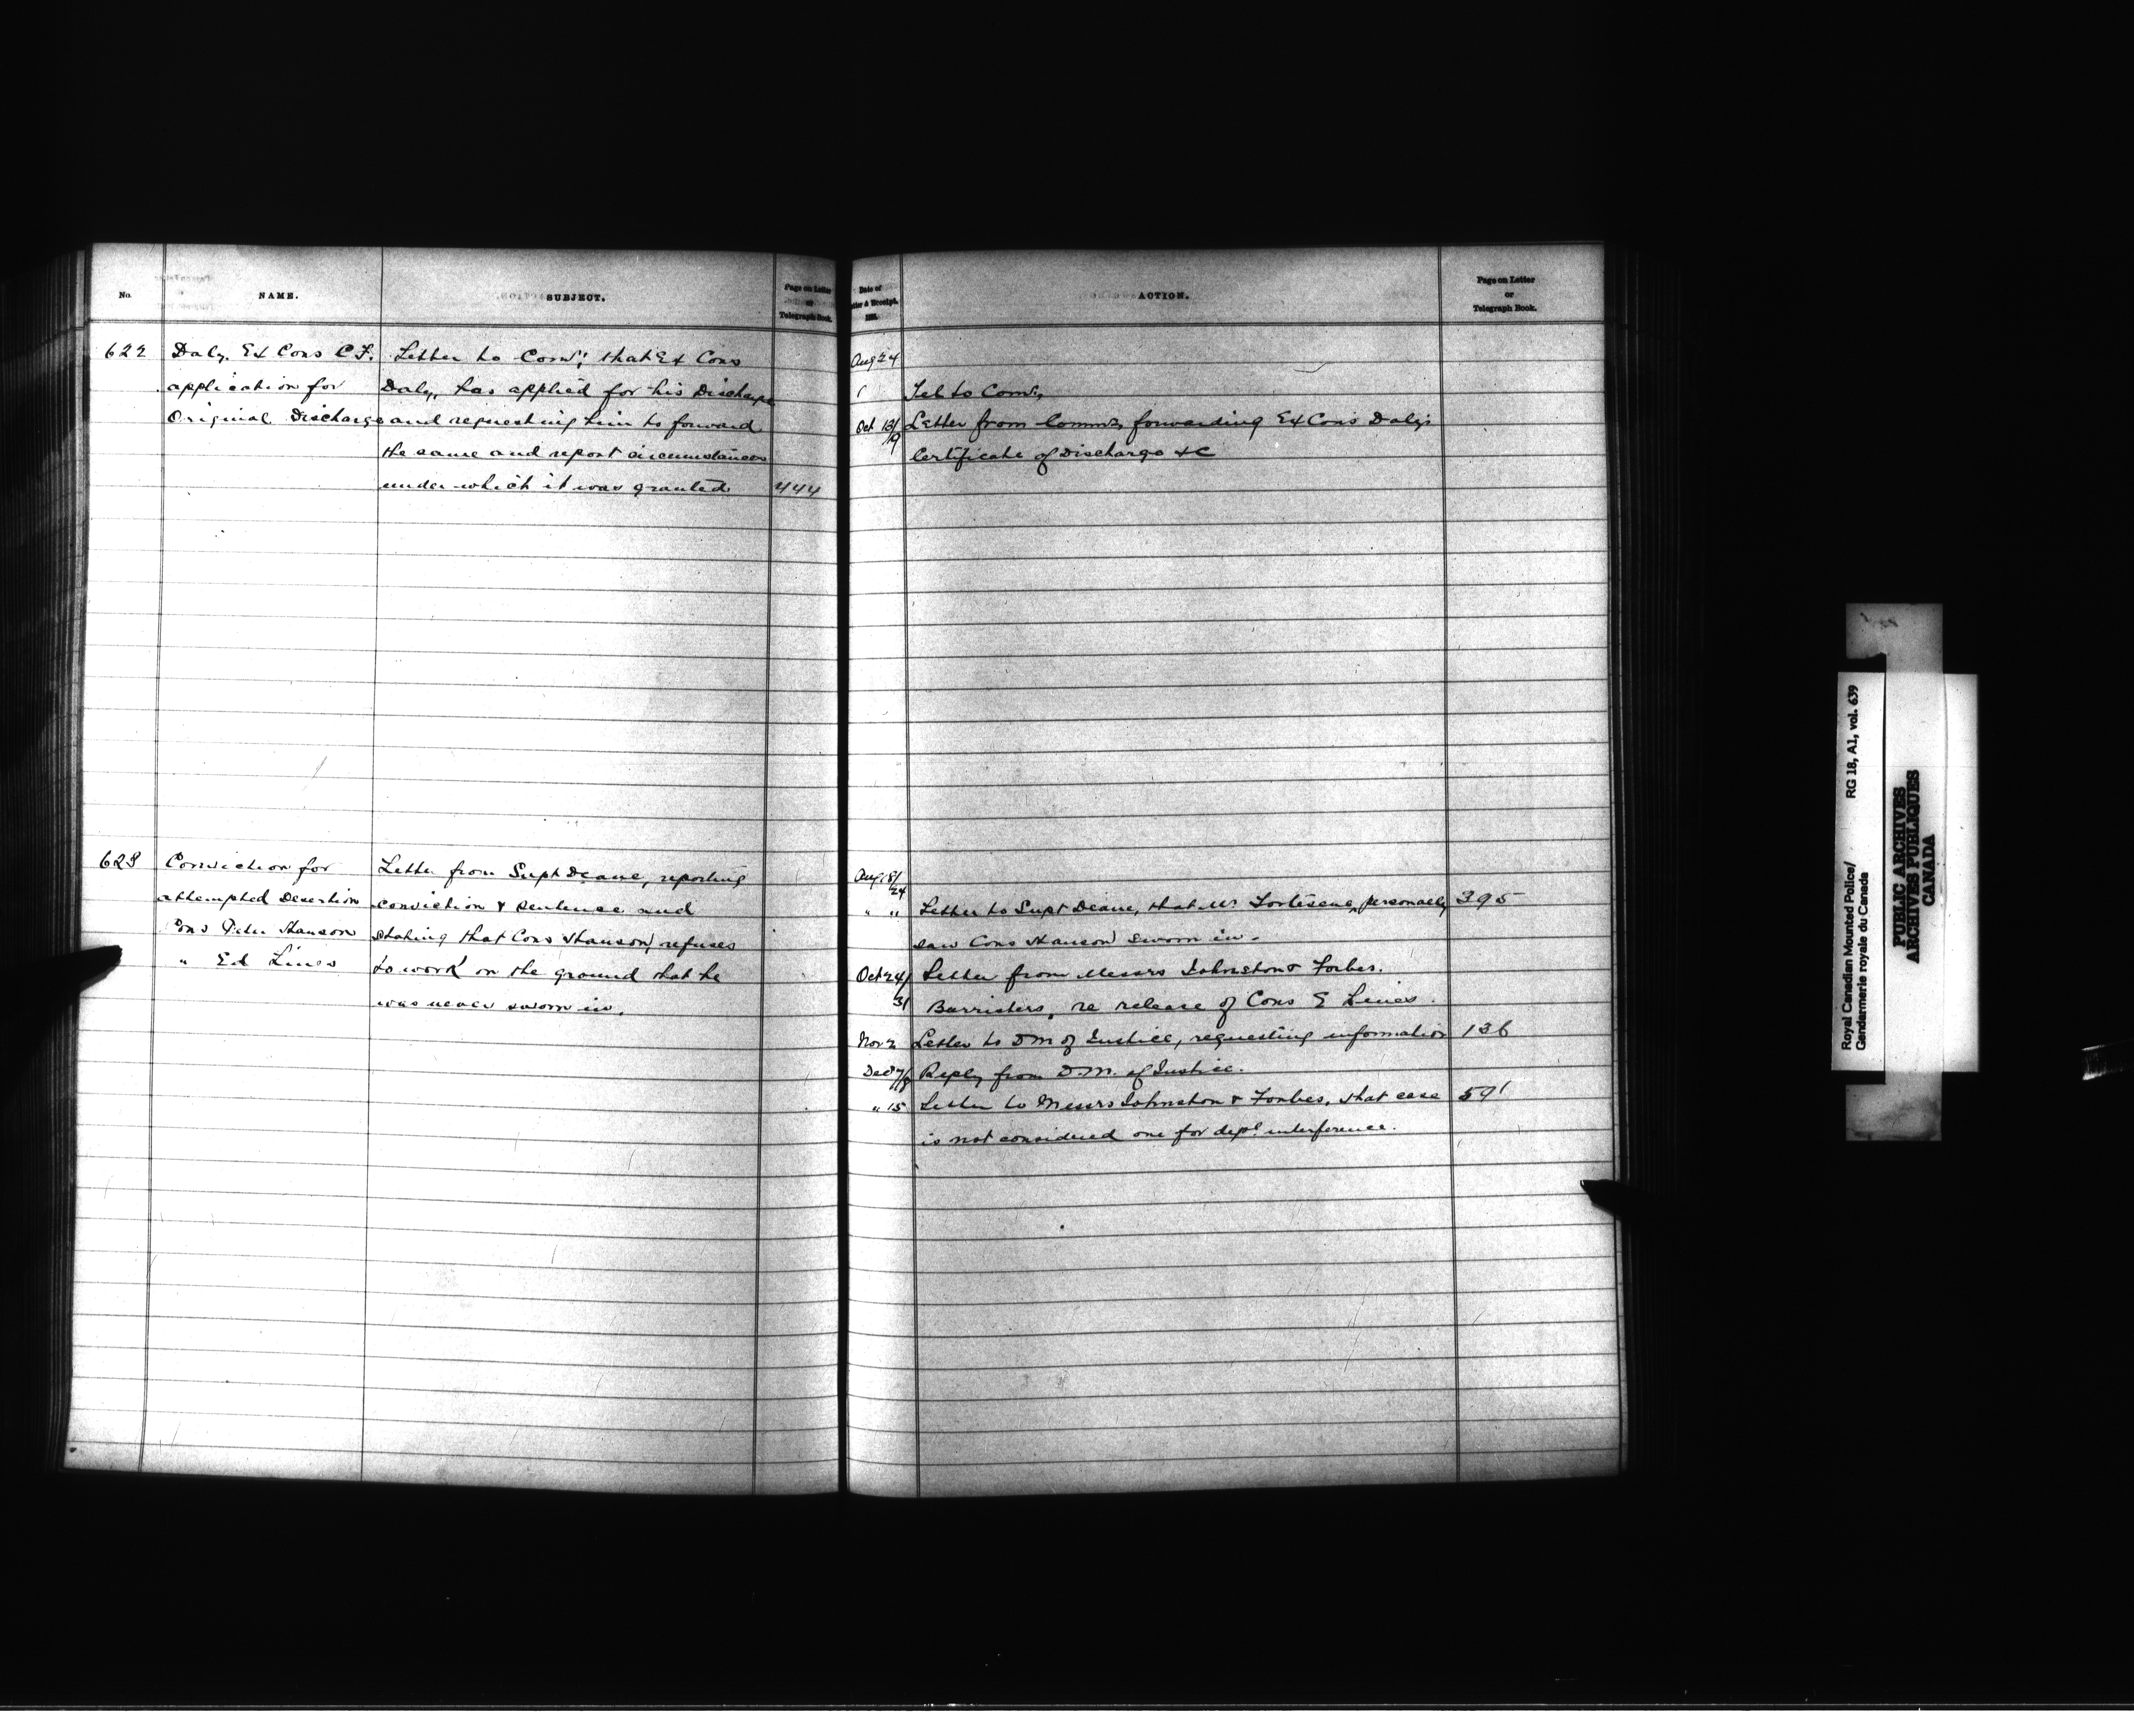 No.
NAME.
SUBJECT.
Page on Letter
or
Telegraph Book.
622
Daly, Ex Cons C.F.
application for
Original Discharge
Letter to Comr; that Ex Cons
Daly, has applied for his Discharge
and requesting him to forward
the same and report circumstances
under which it was granted.
444
623
Conviction for
attempted Desertion
Cons Peter Hanson
" Ed Lines
Letter from Supt Deane, reporting
conviction & sentence and
stating that Cons Hanson, refuses
to work on the ground that he
was never sworn in.
Date of
Letter & Receipt.
ACTION.
Page on Letter
or
Telegraph Book.
Aug 24
Tel to Comr,
Oct 13/19
Letter from Commr, forwarding Ex Cons Daly's
Certificate of Discharge &c
Aug 18/24
" "
Letter to Supt Deane, that Mr Fortescue, personally
395
saw Cons Hanson sworn in.
Oct 24/31
Letter from Messrs Johnston & Forbes.
Barristers, re release of Cons E Lines.
Nov 2
Letter to D M of Justice, requesting information
136
Dec 7/8
Reply from D.M. of Justice.
" 15
Letter to Messrs Johnston & Forbes, that case
591
is not considered one for deptl interference.
Royal Canadian Mounted Police/
Gendarmerie royale du Canada
RG 18, A1, vol. 639
PUBLIC ARCHIVES
ARCHIVES PUBLIQUES
CANADA